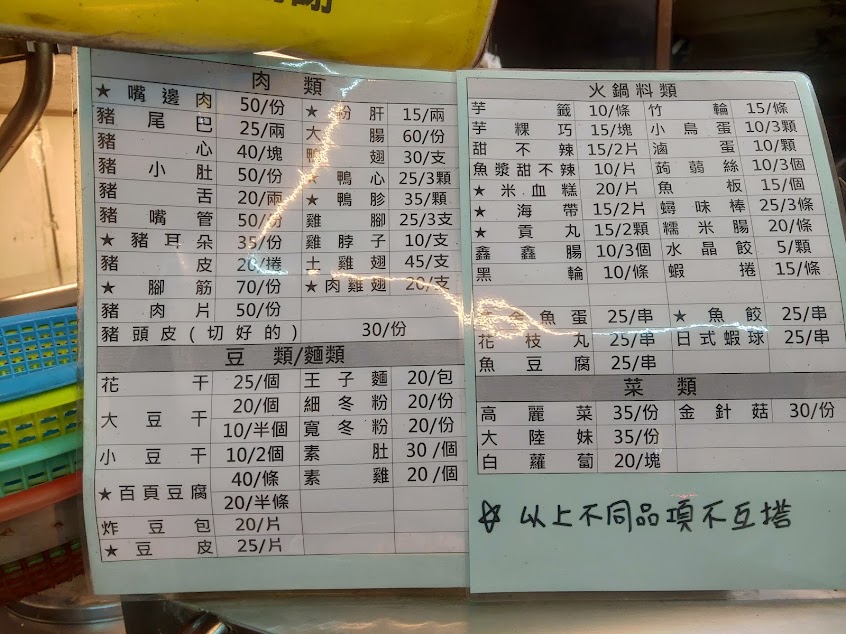 肉類
★嘴邊肉 50/份 ★粉肝 15/兩
豬尾巴 25/兩 大腸 60/份
豬心 40/塊 鴨翅 30/支
豬小肚 50/份 ★鴨心 25/3顆
豬舌 20/兩 ★鴨胗 35/顆
豬嘴管 50/份 雞腳 25/3支
★豬耳朵 35/份 雞脖子 10/支
豬皮 20/捲 土雞翅 45/支
★腳筋 70/份 ★肉雞翅 20/支
豬肉片 50/份
豬頭皮(切好的) 30/份
豆類/麵類
花干 25/個 王子麵 20/包
大豆干 20/個 細冬粉 20/份
10/半個 寬冬粉 20/份
小豆干 10/2個 素肚 30/個
★百頁豆腐 40/條 素雞 20/個
20/半條
炸豆包 20/片
★豆皮 25/片
火鍋料類
芋籤 10/條 竹輪 15/條
芋粿巧 15/塊 小鳥蛋 10/3顆
甜不辣 15/2片 滷蛋 10/顆
魚漿甜不辣 10/片 蒟蒻絲 10/3個
★米血糕 20/片 魚板 15/個
★海帶 15/2片 蟳味棒 25/3條
★貢丸 15/2顆 糯米腸 20/條
鑫鑫腸 10/3個 水晶餃 5/顆
黑輪 10/條 蝦捲 15/條
金魚蛋 25/串 ★魚餃 25/串
花枝丸 25/串 日式蝦球 25/串
魚豆腐 25/串
菜類
高麗菜 35/份 金針菇 30/份
大陸妹 35/份
白蘿蔔 20/塊
☆以上不同品項不互塔